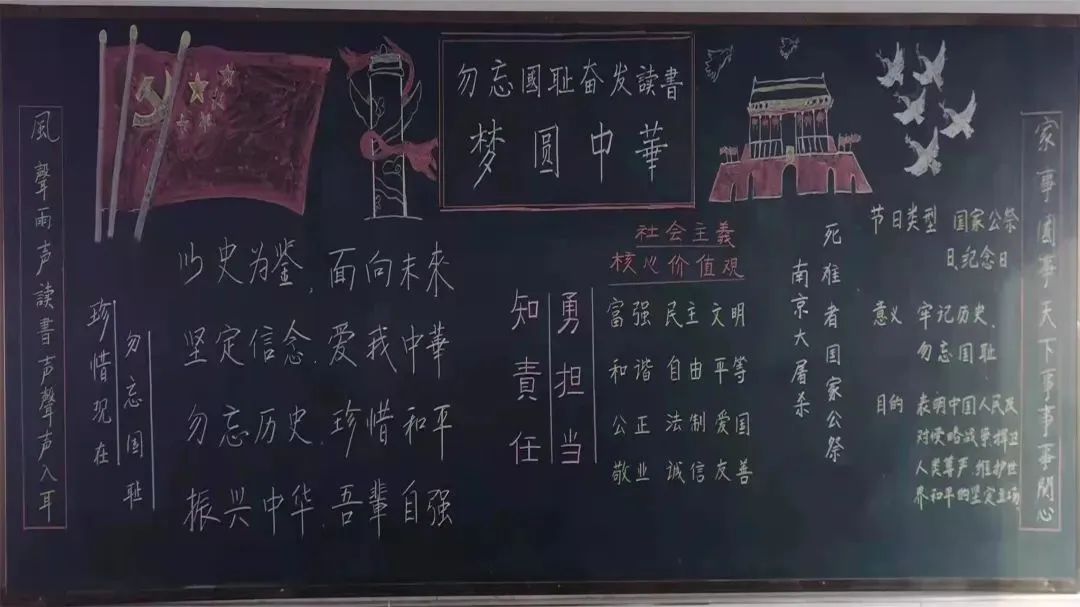 勿忘國耻奋发読書
梦圆中華
風聲雨声讀書声聲声入耳
珍惜现在
勿忘国耻
以史为鉴,面向未來
坚定信念,爱我中華
勿忘历史,珍惜和平
振兴中华,吾輩自强
知責任
勇担当
社会主義
核心价值观
富强 民主 文明
和谐 自由 平等
公正 法制 爱国
敬业 诚信 友善
南京大屠杀
死难者国家公祭
节日类型 国家公祭
日、纪念日
意义 牢记历史、
勿忘国耻
目的 表明中国人民反
对侵略战争捍卫
人类尊严、维护世
界和平的坚定立场
家事國事天下事事事関心